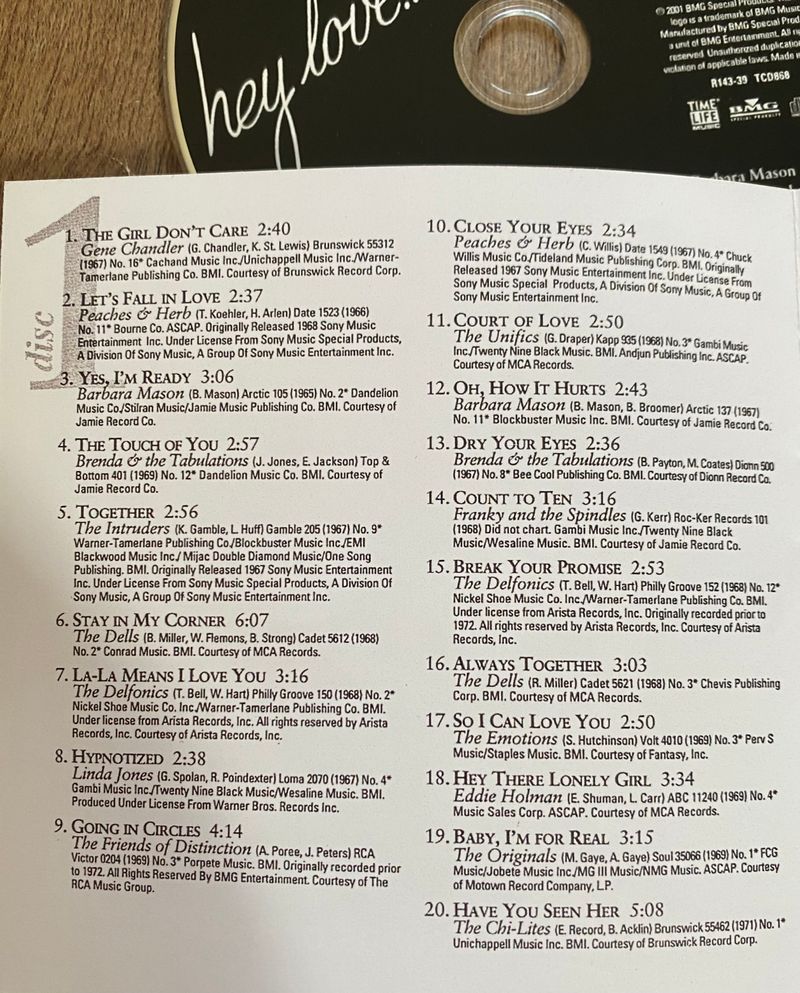 hey love...
℗ 2001 BMG Special Products
logo is a trademark of BMG Music
Manufactured by BMG Special Prod
a unit of BMG Entertainment. All ri
reserved. Unauthorized duplication
violation of applicable laws. Made
R143-39 TCD868
TIME LIFE MUSIC
BMG SPECIAL PRODUCTS
bara Mason
disc 1
1. THE GIRL DON'T CARE 2:40
Gene Chandler (G. Chandler, K. St. Lewis) Brunswick 55312
(1967) No. 16* Cachand Music Inc./Unichappell Music Inc./Warner-
Tamerlane Publishing Co. BMI. Courtesy of Brunswick Record Corp.
2. LET'S FALL IN LOVE 2:37
Peaches & Herb (T. Koehler, H. Arlen) Date 1523 (1966)
No. 11* Bourne Co. ASCAP. Originally Released 1968 Sony Music
Entertainment Inc. Under License From Sony Music Special Products,
A Division Of Sony Music, A Group Of Sony Music Entertainment Inc.
3. YES, I'M READY 3:06
Barbara Mason (B. Mason) Arctic 105 (1965) No. 2* Dandelion
Music Co./Stilran Music/Jamie Music Publishing Co. BMI. Courtesy of
Jamie Record Co.
4. THE TOUCH OF YOU 2:57
Brenda & the Tabulations (J. Jones, E. Jackson) Top &
Bottom 401 (1969) No. 12* Dandelion Music Co. BMI. Courtesy of
Jamie Record Co.
5. TOGETHER 2:56
The Intruders (K. Gamble, L. Huff) Gamble 205 (1967) No. 9*
Warner-Tamerlane Publishing Co./Blockbuster Music Inc./EMI
Blackwood Music Inc./ Mijac Double Diamond Music/One Song
Publishing. BMI. Originally Released 1967 Sony Music Entertainment
Inc. Under License From Sony Music Special Products, A Division Of
Sony Music, A Group Of Sony Music Entertainment Inc.
6. STAY IN MY CORNER 6:07
The Dells (B. Miller, W. Flemons, B. Strong) Cadet 5612 (1968)
No. 2* Conrad Music. BMI. Courtesy of MCA Records.
7. LA-LA MEANS I LOVE YOU 3:16
The Delfonics (T. Bell, W. Hart) Philly Groove 150 (1968) No. 2*
Nickel Shoe Music Co. Inc./Warner-Tamerlane Publishing Co. BMI.
Under license from Arista Records, Inc. All rights reserved by Arista
Records, Inc. Courtesy of Arista Records, Inc.
8. HYPNOTIZED 2:38
Linda Jones (G. Spolan, R. Poindexter) Loma 2070 (1967) No. 4*
Gambi Music Inc./Twenty Nine Black Music/Wesaline Music. BMI.
Produced Under License From Warner Bros. Records Inc.
9. GOING IN CIRCLES 4:14
The Friends of Distinction (A. Poree, J. Peters) RCA
Victor 0204 (1969) No. 3* Porpete Music. BMI. Originally recorded prior
to 1972. All Rights Reserved By BMG Entertainment. Courtesy of The
RCA Music Group.
10. CLOSE YOUR EYES 2:34
Peaches & Herb (C. Willis) Date 1549 (1967) No. 4* Chuck
Willis Music Co./Tideland Music Publishing Corp. BMI. Originally
Released 1967 Sony Music Entertainment Inc. Under License From
Sony Music Special Products, A Division Of Sony Music, A Group Of
Sony Music Entertainment Inc.
11. COURT OF LOVE 2:50
The Unifics (G. Draper) Kapp 935 (1968) No. 3* Gambi Music
Inc./Twenty Nine Black Music. BMI. Andjun Publishing Inc. ASCAP.
Courtesy of MCA Records.
12. OH, HOW IT HURTS 2:43
Barbara Mason (B. Mason, B. Broomer) Arctic 137 (1967)
No. 11* Blockbuster Music Inc. BMI. Courtesy of Jamie Record Co.
13. DRY YOUR EYES 2:36
Brenda & the Tabulations (B. Payton, M. Coates) Dionn 500
(1967) No. 8* Bee Cool Publishing Co. BMI. Courtesy of Dionn Record Co.
14. COUNT TO TEN 3:16
Franky and the Spindles (G. Kerr) Roc-Ker Records 101
(1968) Did not chart. Gambi Music Inc./Twenty Nine Black
Music/Wesaline Music. BMI. Courtesy of Jamie Record Co.
15. BREAK YOUR PROMISE 2:53
The Delfonics (T. Bell, W. Hart) Philly Groove 152 (1968) No. 12*
Nickel Shoe Music Co. Inc./Warner-Tamerlane Publishing Co. BMI.
Under license from Arista Records, Inc. Originally recorded prior to
1972. All rights reserved by Arista Records, Inc. Courtesy of Arista
Records, Inc.
16. ALWAYS TOGETHER 3:03
The Dells (R. Miller) Cadet 5621 (1968) No. 3* Chevis Publishing
Corp. BMI. Courtesy of MCA Records.
17. SO I CAN LOVE YOU 2:50
The Emotions (S. Hutchinson) Volt 4010 (1969) No. 3* Perv S
Music/Staples Music. BMI. Courtesy of Fantasy, Inc.
18. HEY THERE LONELY GIRL 3:34
Eddie Holman (E. Shuman, L. Carr) ABC 11240 (1969) No. 4*
Music Sales Corp. ASCAP. Courtesy of MCA Records.
19. BABY, I'M FOR REAL 3:15
The Originals (M. Gaye, A. Gaye) Soul 35066 (1969) No. 1* FCG
Music/Jobete Music Inc./MG III Music/NMG Music. ASCAP. Courtesy
of Motown Record Company, L.P.
20. HAVE YOU SEEN HER 5:08
The Chi-Lites (E. Record, B. Acklin) Brunswick 55462 (1971) No. 1*
Unichappell Music Inc. BMI. Courtesy of Brunswick Record Corp.